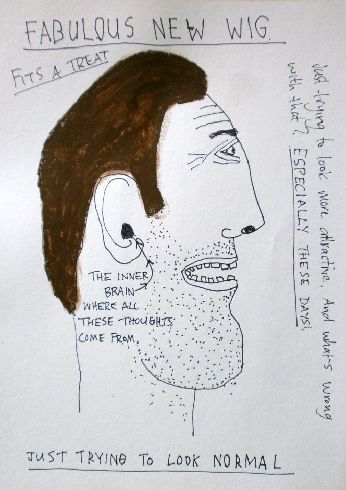 FABULOUS NEW WIG.
FITS A TREAT
Just trying to look more attractive. And what's wrong
with that? ESPECIALLY THESE DAYS!
THE INNER
BRAIN
WHERE ALL
THESE THOUGHTS
COME FROM.
JUST TRYING TO LOOK NORMAL